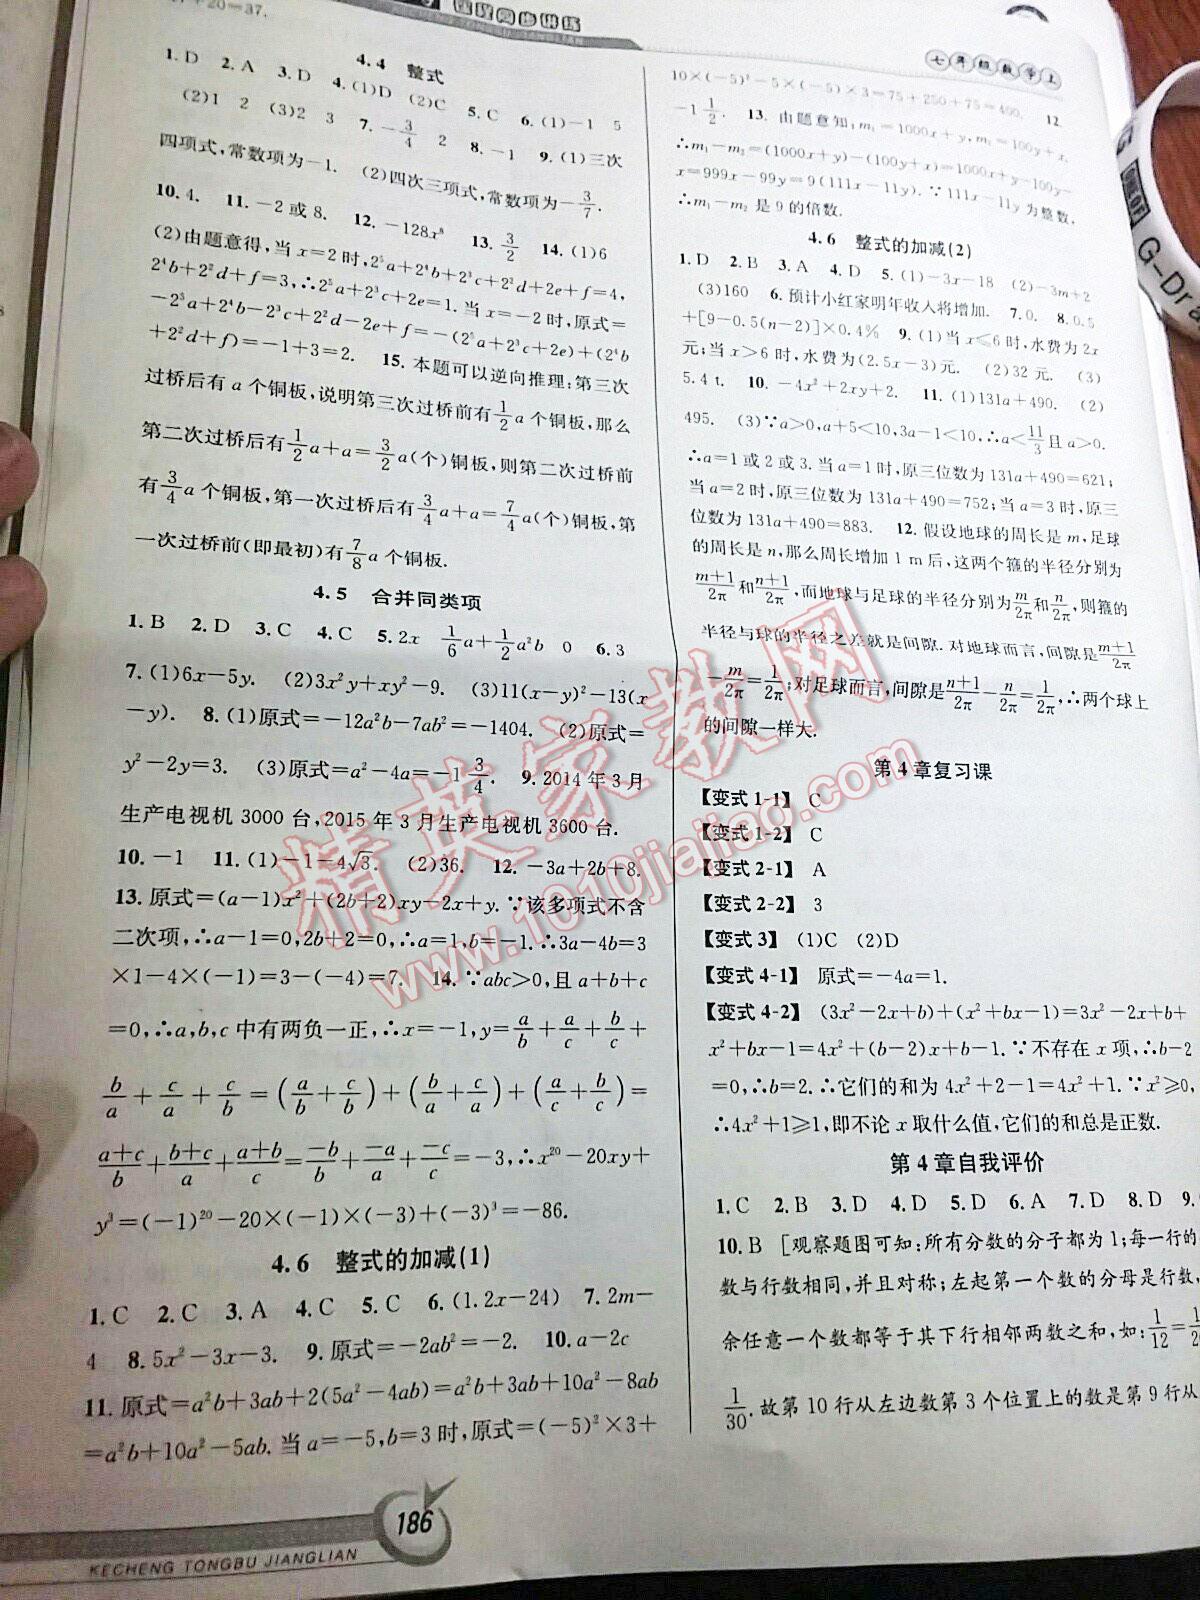 +20=37.
课程同步讲练
七年级数学上
4.4 整式
1.D 2.A 3.D 4.(1)D (2)C 5.C 6.(1)-1 5
(2)1 2 (3)2 3 7.-3/4 2 8.-1 9.(1)三次
四项式,常数项为-1. (2)四次三项式,常数项为-3/7.
10.4. 11.-2或8. 12.-128x⁸ 13.3/2 14.(1)6
(2)由题意得,当x=2时,2⁵a+2⁴b+2³c+2²d+2e+f=4,
2⁴b+2²d+f=3,∴2⁵a+2³c+2e=1.当x=-2时,原式=
-2⁵a+2⁴b-2³c+2²d-2e+f=-(2⁵a+2³c+2e)+(2⁴b
+2²d+f)=-1+3=2. 15.本题可以逆向推理:第三次
过桥后有a个铜板,说明第三次过桥前有1/2a个铜板,那么
第二次过桥后有1/2a+a=3/2a(个)铜板,则第二次过桥前
有3/4a个铜板,第一次过桥后有3/4a+a=7/4a(个)铜板,第
一次过桥前(即最初)有7/8a个铜板.
4.5 合并同类项
1.B 2.D 3.C 4.C 5.2x 1/6a+1/2a²b 0 6.3
7.(1)6x-5y. (2)3x²y+xy²-9. (3)11(x-y)²-13(x
-y). 8.(1)原式=-12a²b-7ab²=-1404. (2)原式=
y²-2y=3. (3)原式=a²-4a=-1 3/4. 9.2014年3月
生产电视机3000台,2015年3月生产电视机3600台.
10.-1 11.(1)-1-4√3. (2)36. 12.-3a+2b+8.
13.原式=(a-1)x²+(2b+2)xy-2x+y.∵该多项式不含
二次项,∴a-1=0,2b+2=0,∴a=1,b=-1.∴3a-4b=3
×1-4×(-1)=3-(-4)=7. 14.∵abc>0,且a+b+c
=0,∴a,b,c中有两负一正,∴x=-1,y=a/b+a/c+b/c+
b/a+c/a+c/b=(a/b+c/b)+(b/a+c/a)+(a/c+b/c)=
(a+c)/b+(b+c)/a+(a+b)/c=-b/b+-a/a+-c/c=-3,∴x²⁰-20xy+
y³=(-1)²⁰-20×(-1)×(-3)+(-3)³=-86.
4.6 整式的加减(1)
1.C 2.C 3.A 4.C 5.C 6.(1.2x-24) 7.2m-
4 8.5x²-3x-3. 9.原式=-2ab²=-2. 10.a-2c
11.原式=a²b+3ab+2(5a²-4ab)=a²b+3ab+10a²-8ab
=a²b+10a²-5ab.当a=-5,b=3时,原式=(-5)²×3+
10×(-5)²-5×(-5)×3=75+250+75=400. 12.
-1 1/2. 13.由题意知,m₁=1000x+y,m₂=100y+x,
∴m₁-m₂=(1000x+y)-(100y+x)=1000x+y-100y-
x=999x-99y=9(111x-11y).∵111x-11y为整数,
∴m₁-m₂是9的倍数.
4.6 整式的加减(2)
1.D 2.B 3.A 4.D 5.(1)-3x-18 (2)-3m+2
(3)160 6.预计小红家明年收入将增加. 7.0. 8.0.5
+[9-0.5(n-2)]×0.4% 9.(1)当x≤6时,水费为2x
元;当x>6时,水费为(2.5x-3)元. (2)32元. (3)
5.4 t. 10.-4x²+2xy+2. 11.(1)131a+490. (2)
495. (3)∵a>0,a+5<10,3a-1<10,∴a<11/3且a>0.
∴a=1或2或3.当a=1时,原三位数为131a+490=621;
当a=2时,原三位数为131a+490=752;当a=3时,原三
位数为131a+490=883. 12.假设地球的周长是m,足球
的周长是n,那么周长增加1 m后,这两个箍的半径分别为
(m+1)/2π和(n+1)/2π,而地球与足球的半径分别为m/2π和n/2π,则箍的
半径与球的半径之差就是间隙.对地球而言,间隙是(m+1)/2π
-m/2π=1/2π;对足球而言,间隙是(n+1)/2π-n/2π=1/2π,∴两个球上
的间隙一样大.
第4章复习课
【变式1-1】 C
【变式1-2】 C
【变式2-1】 A
【变式2-2】 3
【变式3】 (1)C (2)D
【变式4-1】 原式=-4a=1.
【变式4-2】 (3x²-2x+b)+(x²+bx-1)=3x²-2x+b+
x²+bx-1=4x²+(b-2)x+b-1.∵不存在x项,∴b-2
=0,∴b=2.∴它们的和为4x²+2-1=4x²+1.∵x²≥0,
∴4x²+1≥1,即不论x取什么值,它们的和总是正数.
第4章自我评价
1.C 2.B 3.D 4.D 5.D 6.A 7.D 8.D 9.
10.B [观察题图可知:所有分数的分子都为1;每一行的
数与行数相同,并且对称;左起第一个数的分母是行数,
余任意一个数都等于其下行相邻两数之和,如:1/12=1/20
1/30.故第10行从左边数第3个位置上的数是第9行从
186
KECHENG TONGBU JIANGLIAN
精英家教网
www.1010jiajiao.com
G-Dra